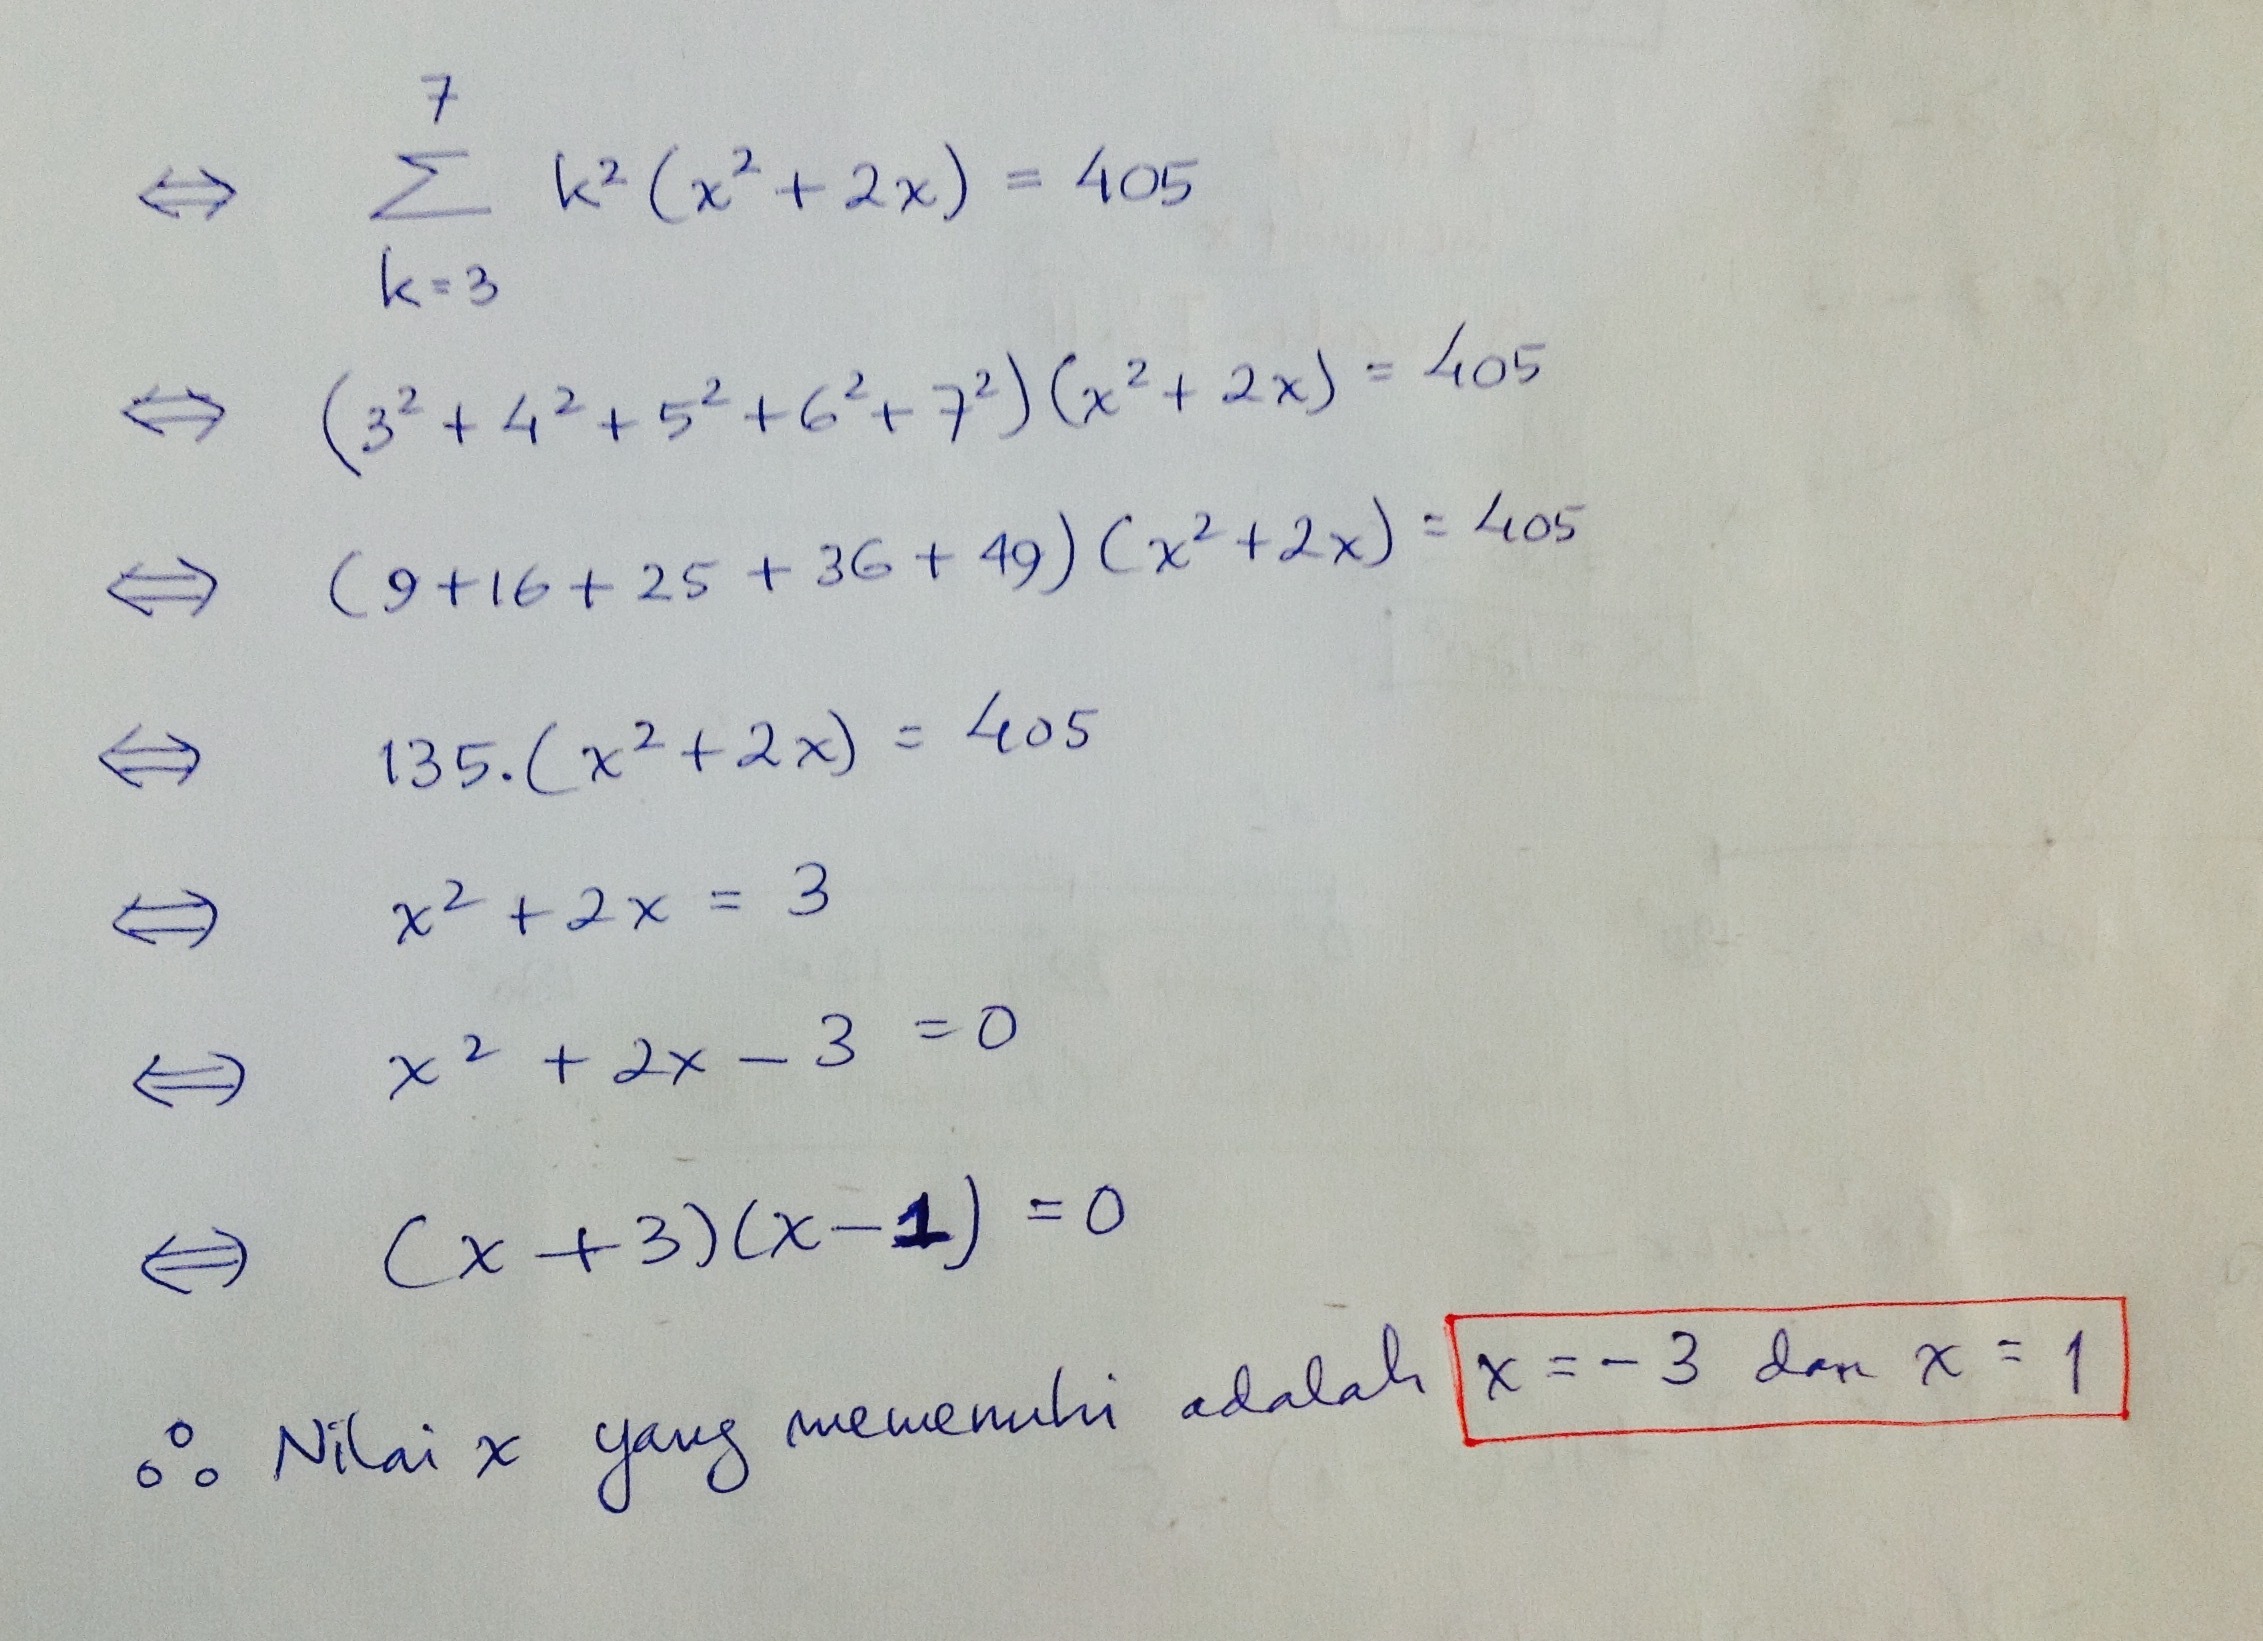 7
⇔ Σ k² (x² + 2x) = 405
k=3
⇔ (3² + 4² + 5² + 6² + 7²) (x² + 2x) = 405
⇔ (9 + 16 + 25 + 36 + 49) (x² + 2x) = 405
⇔ 135. (x² + 2x) = 405
⇔ x² + 2x = 3
⇔ x² + 2x - 3 = 0
⇔ (x + 3)(x - 1) = 0
∴ Nilai x yang memenuhi adalah x = -3 dan x = 1